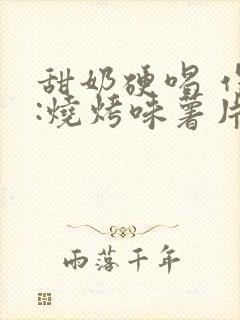 甜奶硬唱
:燒烤味薯片
雨落千年